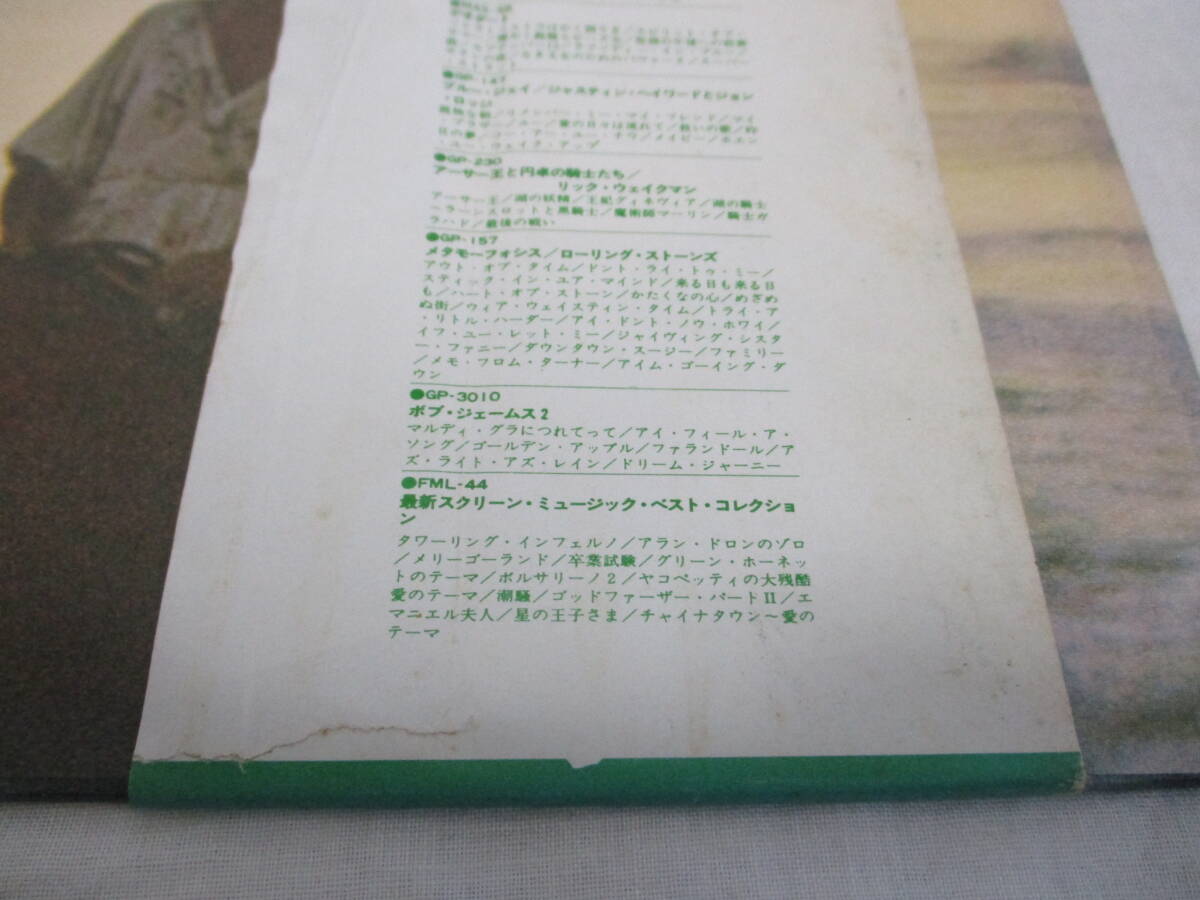 ●GP-147
ブルー・ジェイ/ジャスティン・ヘイワードとジョン
・ロッジ
ユー・ウェイク・アップ
●GP-230
アーサー王と円卓の騎士たち/
リック・ウェイクマン
アーサー王/湖の妖精/王妃グィネヴィア/湖の騎士
―ラーンスロットと黒騎士/魔術師マーリン/騎士ガ
ラハド/最後の戦い
●GP-157
メタモーフォシス/ローリング・ストーンズ
アウト・オブ・タイム/ドント・ライ・トゥ・ミー/
スティック・イン・ユア・マインド/来る日も来る日
も/ハート・オブ・ストーン/かたくなの心/めざめ
ぬ街/ウィア・ウェイスティン・タイム/トライ・ア
・リトル・ハーダー/アイ・ドント・ノウ・ホワイ/
イフ・ユー・レット・ミー/ジャイヴィング・シスタ
ー・ファニー/ダウンタウン・スージー/ファミリー
/メモ・フロム・ターナー/アイム・ゴーイング・ダ
ウン
●GP-3010
ボブ・ジェームス2
マルディ・グラにつれてって/アイ・フィール・ア・
ソング/ゴールデン・アップル/ファランドール/ア
ズ・ライト・アズ・レイン/ドリーム・ジャーニー
●FML-44
最新スクリーン・ミュージック・ベスト・コレクショ
ン
タワーリング・インフェルノ/アラン・ドロンのゾロ
/メリーゴーランド/卒業試験/グリーン・ホーネッ
トのテーマ/ボルサリーノ2/ヤコペッティの大残酷
愛のテーマ/潮騒/ゴッドファーザー・パートII/エ
マニエル夫人/星の王子さま/チャイナタウン〜愛の
テーマ